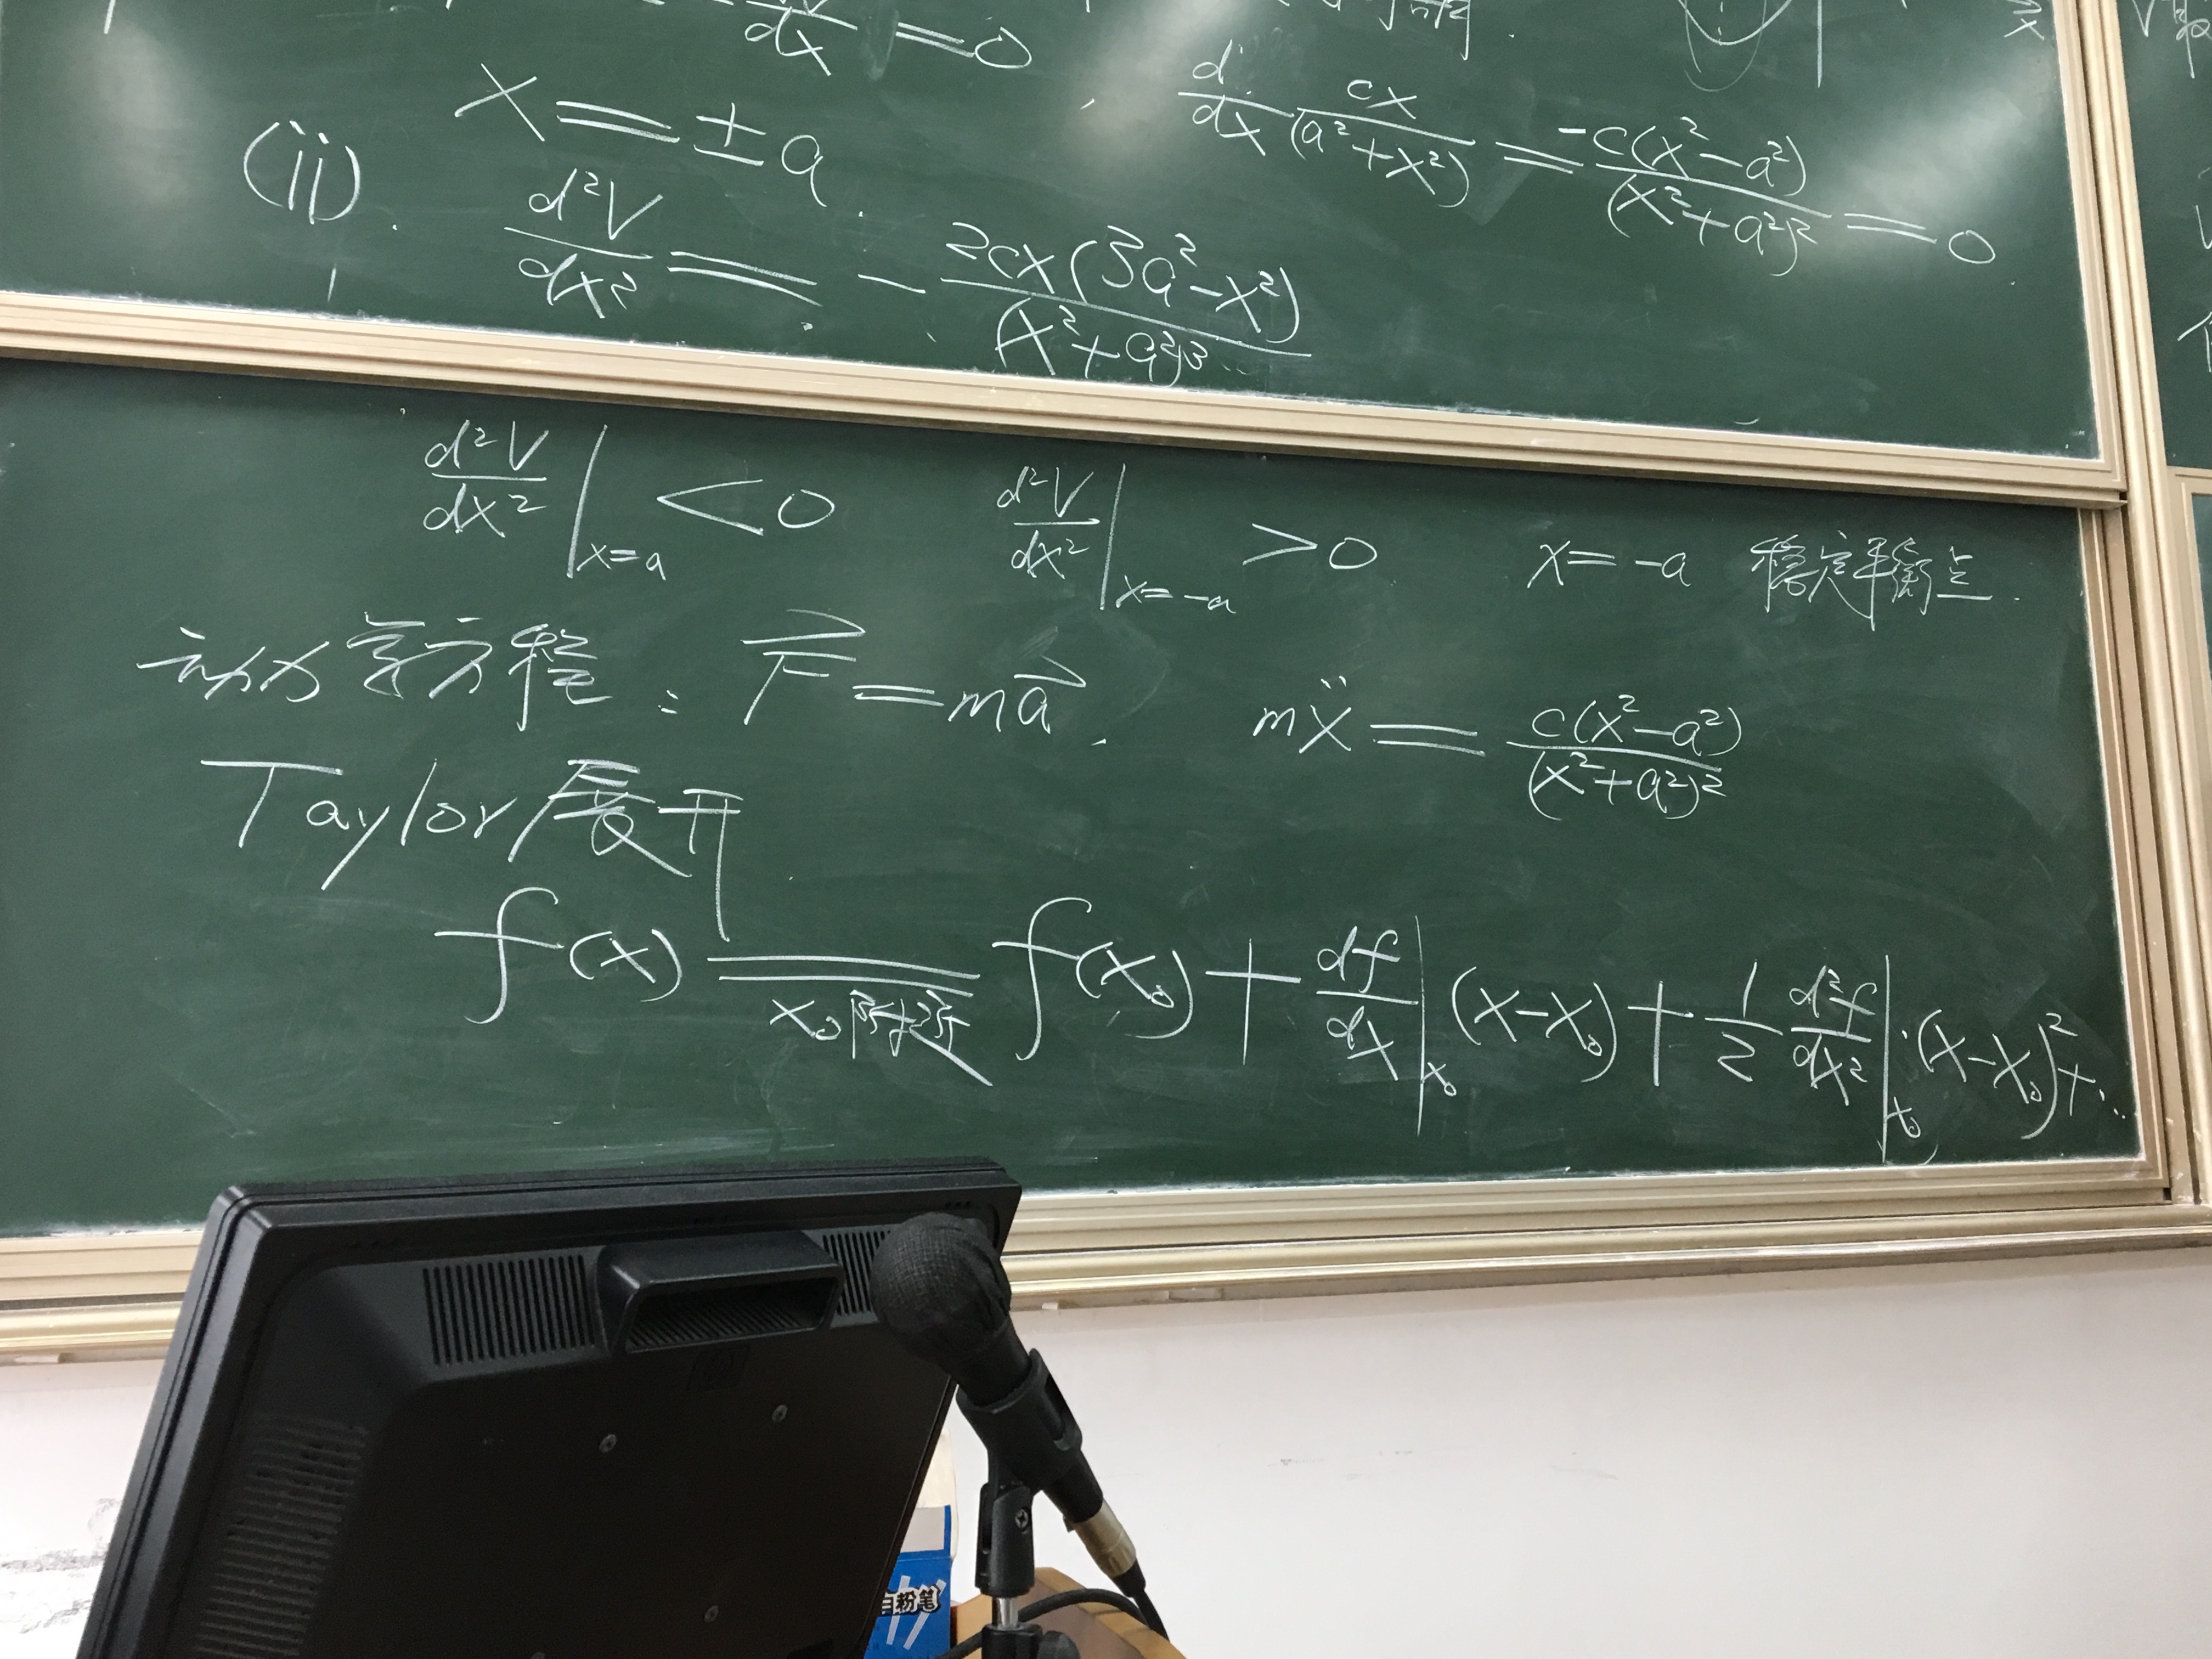 dx = 0
x = ±a
d/dx cx/(a²+x²) = -c(x²-a²)/(x²+a²)² = 0
(ii). d²V/dx² = - 2cx(3a²-x²)/(x²+a²)³
d²V/dx²|x=a < 0 d²V/dx²|x=-a > 0 x=-a 稳定平衡点.
动力学方程: F⃗ = ma⃗. mẍ = c(x²-a²)/(x²+a²)²
Taylor展开
f(x) = f(x₀) + df/dx|x₀ (x-x₀) + 1/2 d²f/dx²|x₀ (x-x₀)² + ...
x₀附近
白粉笔